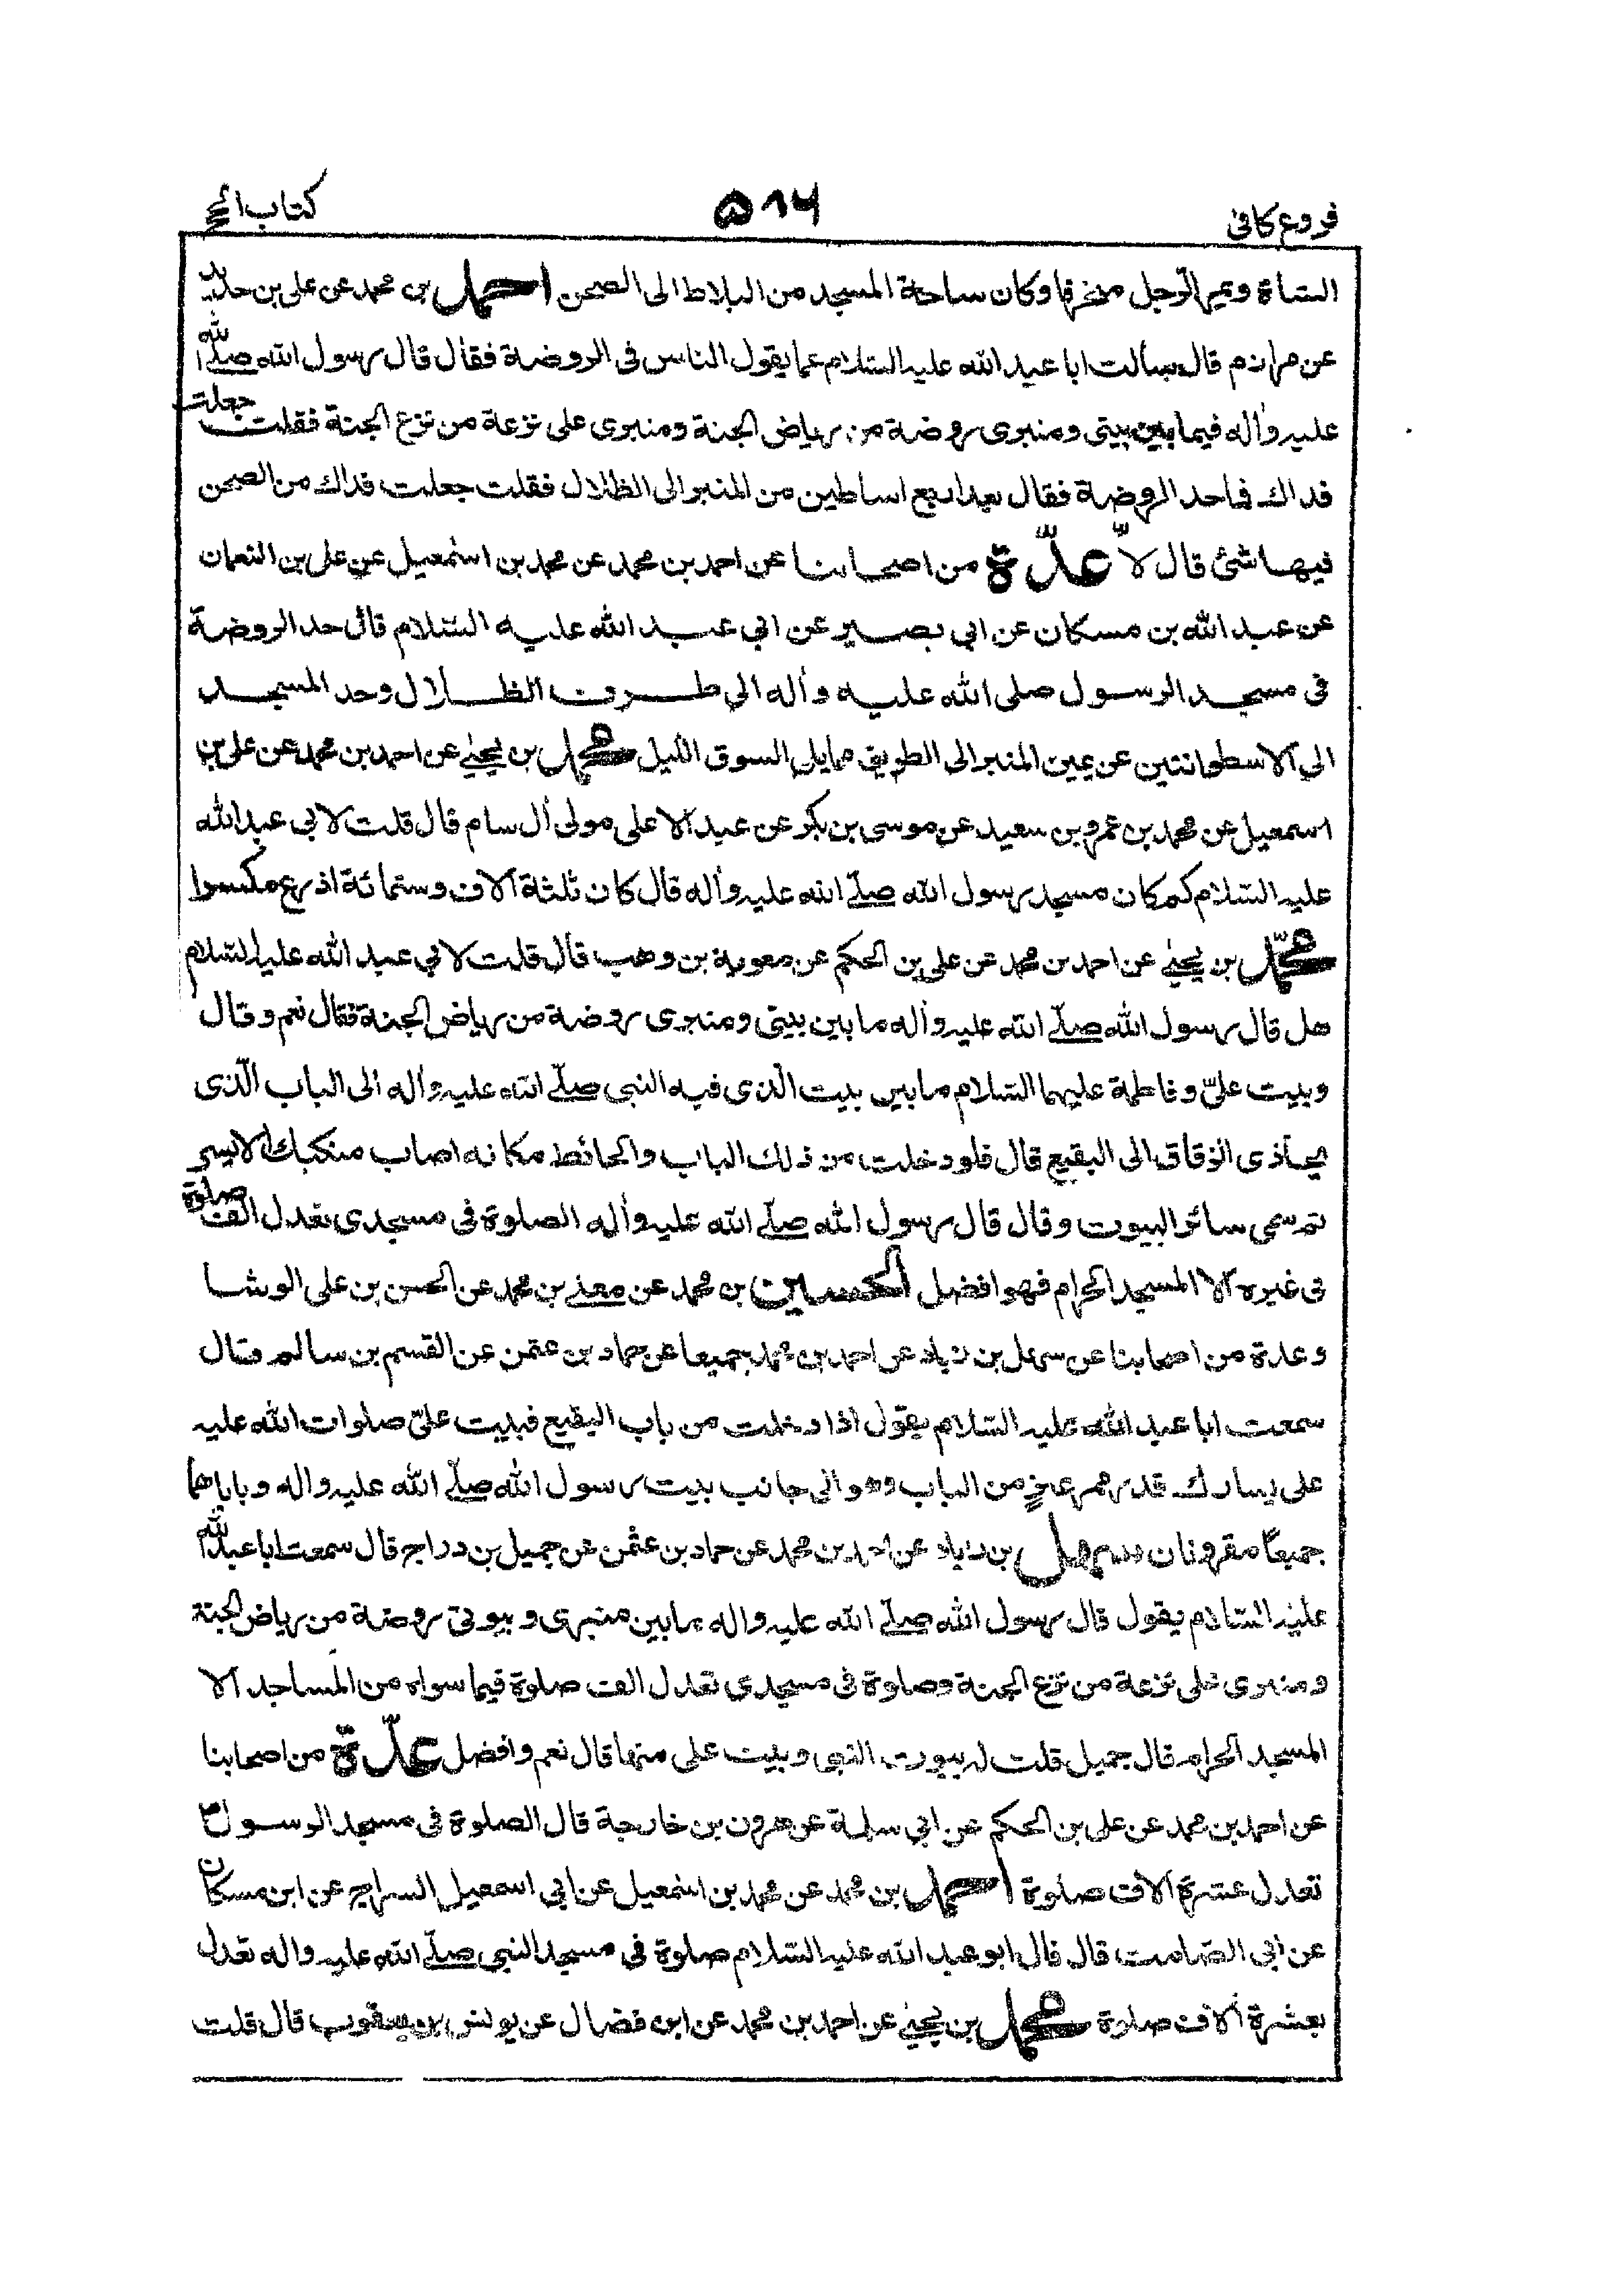 فروع كافى
۵۱۶
كتاب الحج
الشاة ويمر الرّجل منحرفا وكان ساحة المسجد من البلاط الى الصحن احمد بن محمد عن على بن حديد
عن مرازم قال سألت ابا عبد الله عليه السّلام عما يقول الناس فى الروضة فقال قال رسول الله صلّى الله
عليه واٰله فيما بين بيتى ومنبرى روضة من رياض الجنة ومنبرى على ترعة من ترع الجنة فقلت جعلت
فداك فما حد الروضة فقال بعد اربع اساطين من المنبر الى الظلال فقلت جعلت فداك من الصحن
فيها شئ قال لا عدّة من اصحابنا عن احمد بن محمد عن محمد بن اسمٰعيل عن على بن النعمان
عن عبد الله بن مسكان عن ابي بصير عن ابي عبد الله عليه السّلام قال حد الروضة
فى مسجد الرسول صلى الله عليه واٰله الي طرف الظلال وحد المسجد
الي الاسطوانتين عن يمين المنبر الى الطريق مما يلي السوق الليل محمد بن يحيىٰ عن احمد بن محمد عن على بن
اسمعيل عن محمد بن عمرو بن سعيد عن موسى بن بكر عن عبد الاعلى مولى اٰل سام قال قلت لابي عبد الله
عليه السّلام كم كان مسجد رسول الله صلّى الله عليه واٰله قال كان ثلثة اٰلاف وستمائة اذرع مكسرا
محمّد بن يحيىٰ عن احمد بن محمد عن على بن الحكم عن معوية بن وهب قال قلت لابي عبد الله عليه السّلام
هل قال رسول الله صلّى الله عليه واٰله ما بين بيتى ومنبرى روضة من رياض الجنة فقال نعم وقال
وبيت علىّ وفاطمة عليهما السّلام ما بين بيت الّذى فيه النبى صلّى الله عليه واٰله الى الباب الّذى
يحاذى الزقاق الى البقيع قال فلو دخلت من ذلك الباب والحائط مكانه اصاب منكبك الايسر
ثم سمى سائر البيوت وقال قال رسول الله صلّى الله عليه واٰله الصلوة فى مسجدى تعدل الف صلوة
فى غيره الا المسجد الحرام فهو افضل الحسين بن محمد عن معلى بن محمد عن الحسن بن على الوشا
وعدة من اصحابنا عن سهل بن زياد عن احمد بن محمد جميعا عن حماد بن عثمن عن القسم بن سالم قال
سمعت ابا عبد الله عليه السّلام يقول اذا دخلت من باب البقيع فبيت علىّ صلوات الله عليه
على يسارك قدر ممر عنزٍ من الباب وهو الى جانب بيت رسول الله صلّى الله عليه واله وباباهما
جميعًا مقرونان سهل بن زياد عن احمد بن محمد عن حماد بن عثمٰن عن جميل بن دراج قال سمعت ابا عبد الله
عليه السّلام يقول قال رسول الله صلّى الله عليه واله ما بين منبرى وبيوتى روضة من رياض الجنة
ومنبرى على ترعة من ترع الجنة وصلوة فى مسجدى تعدل الف صلوة فيما سواه من المساجد الا
المسجد الحرام قال جميل قلت له بيوت النبى وبيت على منها قال نعم وافضل عدّة من اصحابنا
عن احمد بن محمد عن على بن الحكم عن ابي سلمة عن هرون بن خارجة قال الصلوة فى مسجد الرسول ص
تعدل عشرة اٰلاف صلوة احمد بن محمد عن محمد بن اسمٰعيل عن ابي اسمعيل السراج عن ابن مسكان
عن ابى الصّامت قال قال ابو عبد الله عليه السّلام صلوة فى مسجد النبى صلّى الله عليه واله تعدل
بعشرة اٰلاف صلوة محمد بن يحيىٰ عن احمد بن محمد عن ابن فضال عن يونس بن يعقوب قال قلت